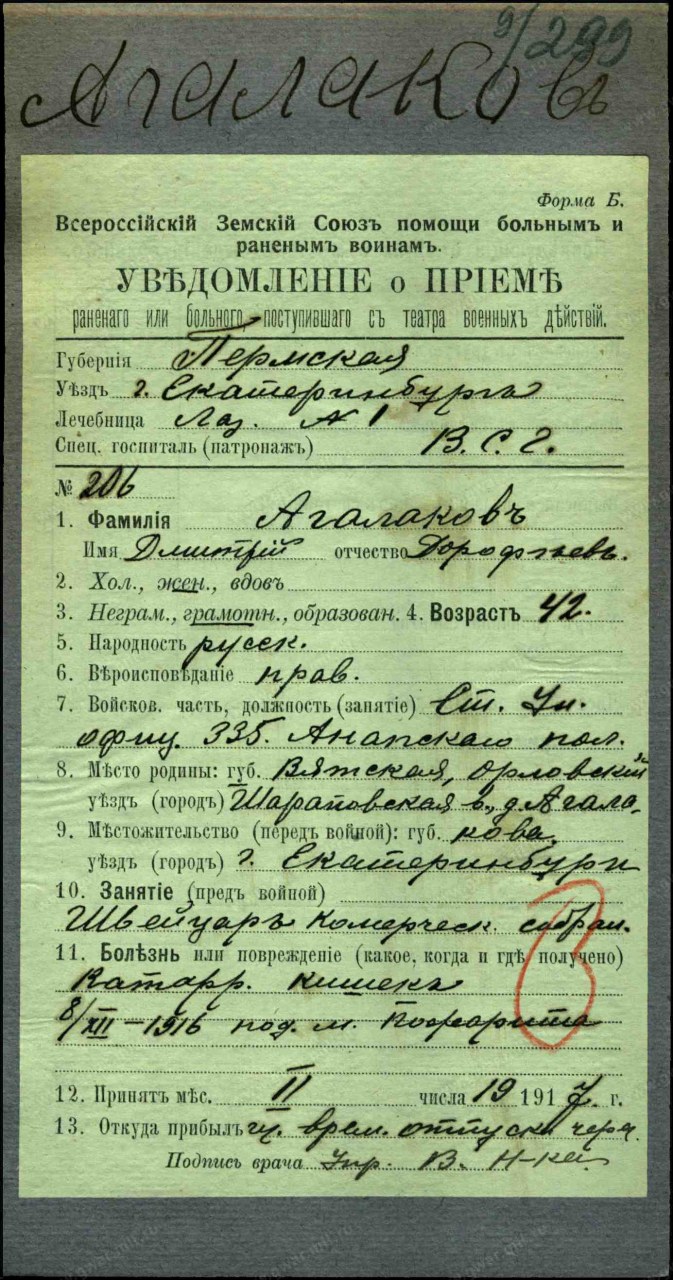 9/299
Агалаковъ
Форма Б.
Всероссійскій Земскій Союзъ помощи больнымъ и
раненымъ воинамъ.
УВѢДОМЛЕНІЕ о ПРІЕМѢ
раненаго или больного, поступившаго съ театра военныхъ дѣйствій.
Губернія Пермская
Уѣздъ г. Екатеринбургъ
Лечебница Лаз. № 1
Спец. госпиталь (патронажъ) В. С. Г.
№ 206
1. Фамилія Агалаковъ
Имя Дмитрій отчество Дорофѣевъ.
2. Хол., жен., вдовъ
3. Неграм., грамотн., образован. 4. Возрастъ 42.
5. Народность русск.
6. Вѣроисповѣданіе прав.
7. Войсков. часть, должность (занятіе) Ст. Ун.
офиц. 335. Анапскаго пол.
8. Мѣсто родины: губ. Вятская, Орловскій
уѣздъ (городъ) Шараповская в., д. Агала-
9. Мѣстожительство (передъ войной): губ. кова.
уѣздъ (городъ) г. Екатеринбург
10. Занятіе (предъ войной)
Швейцаръ Комерческ. собран.
11. Болѣзнь или поврежденіе (какое, когда и гдѣ получено)
Катарр. кишекъ
8/XII–1916 под. м.
12. Принятъ мѣс. II числа 19 1917 г.
13. Откуда прибылъ врем. отпуска чер.
Подпись врача Упр. В. Н-ка.